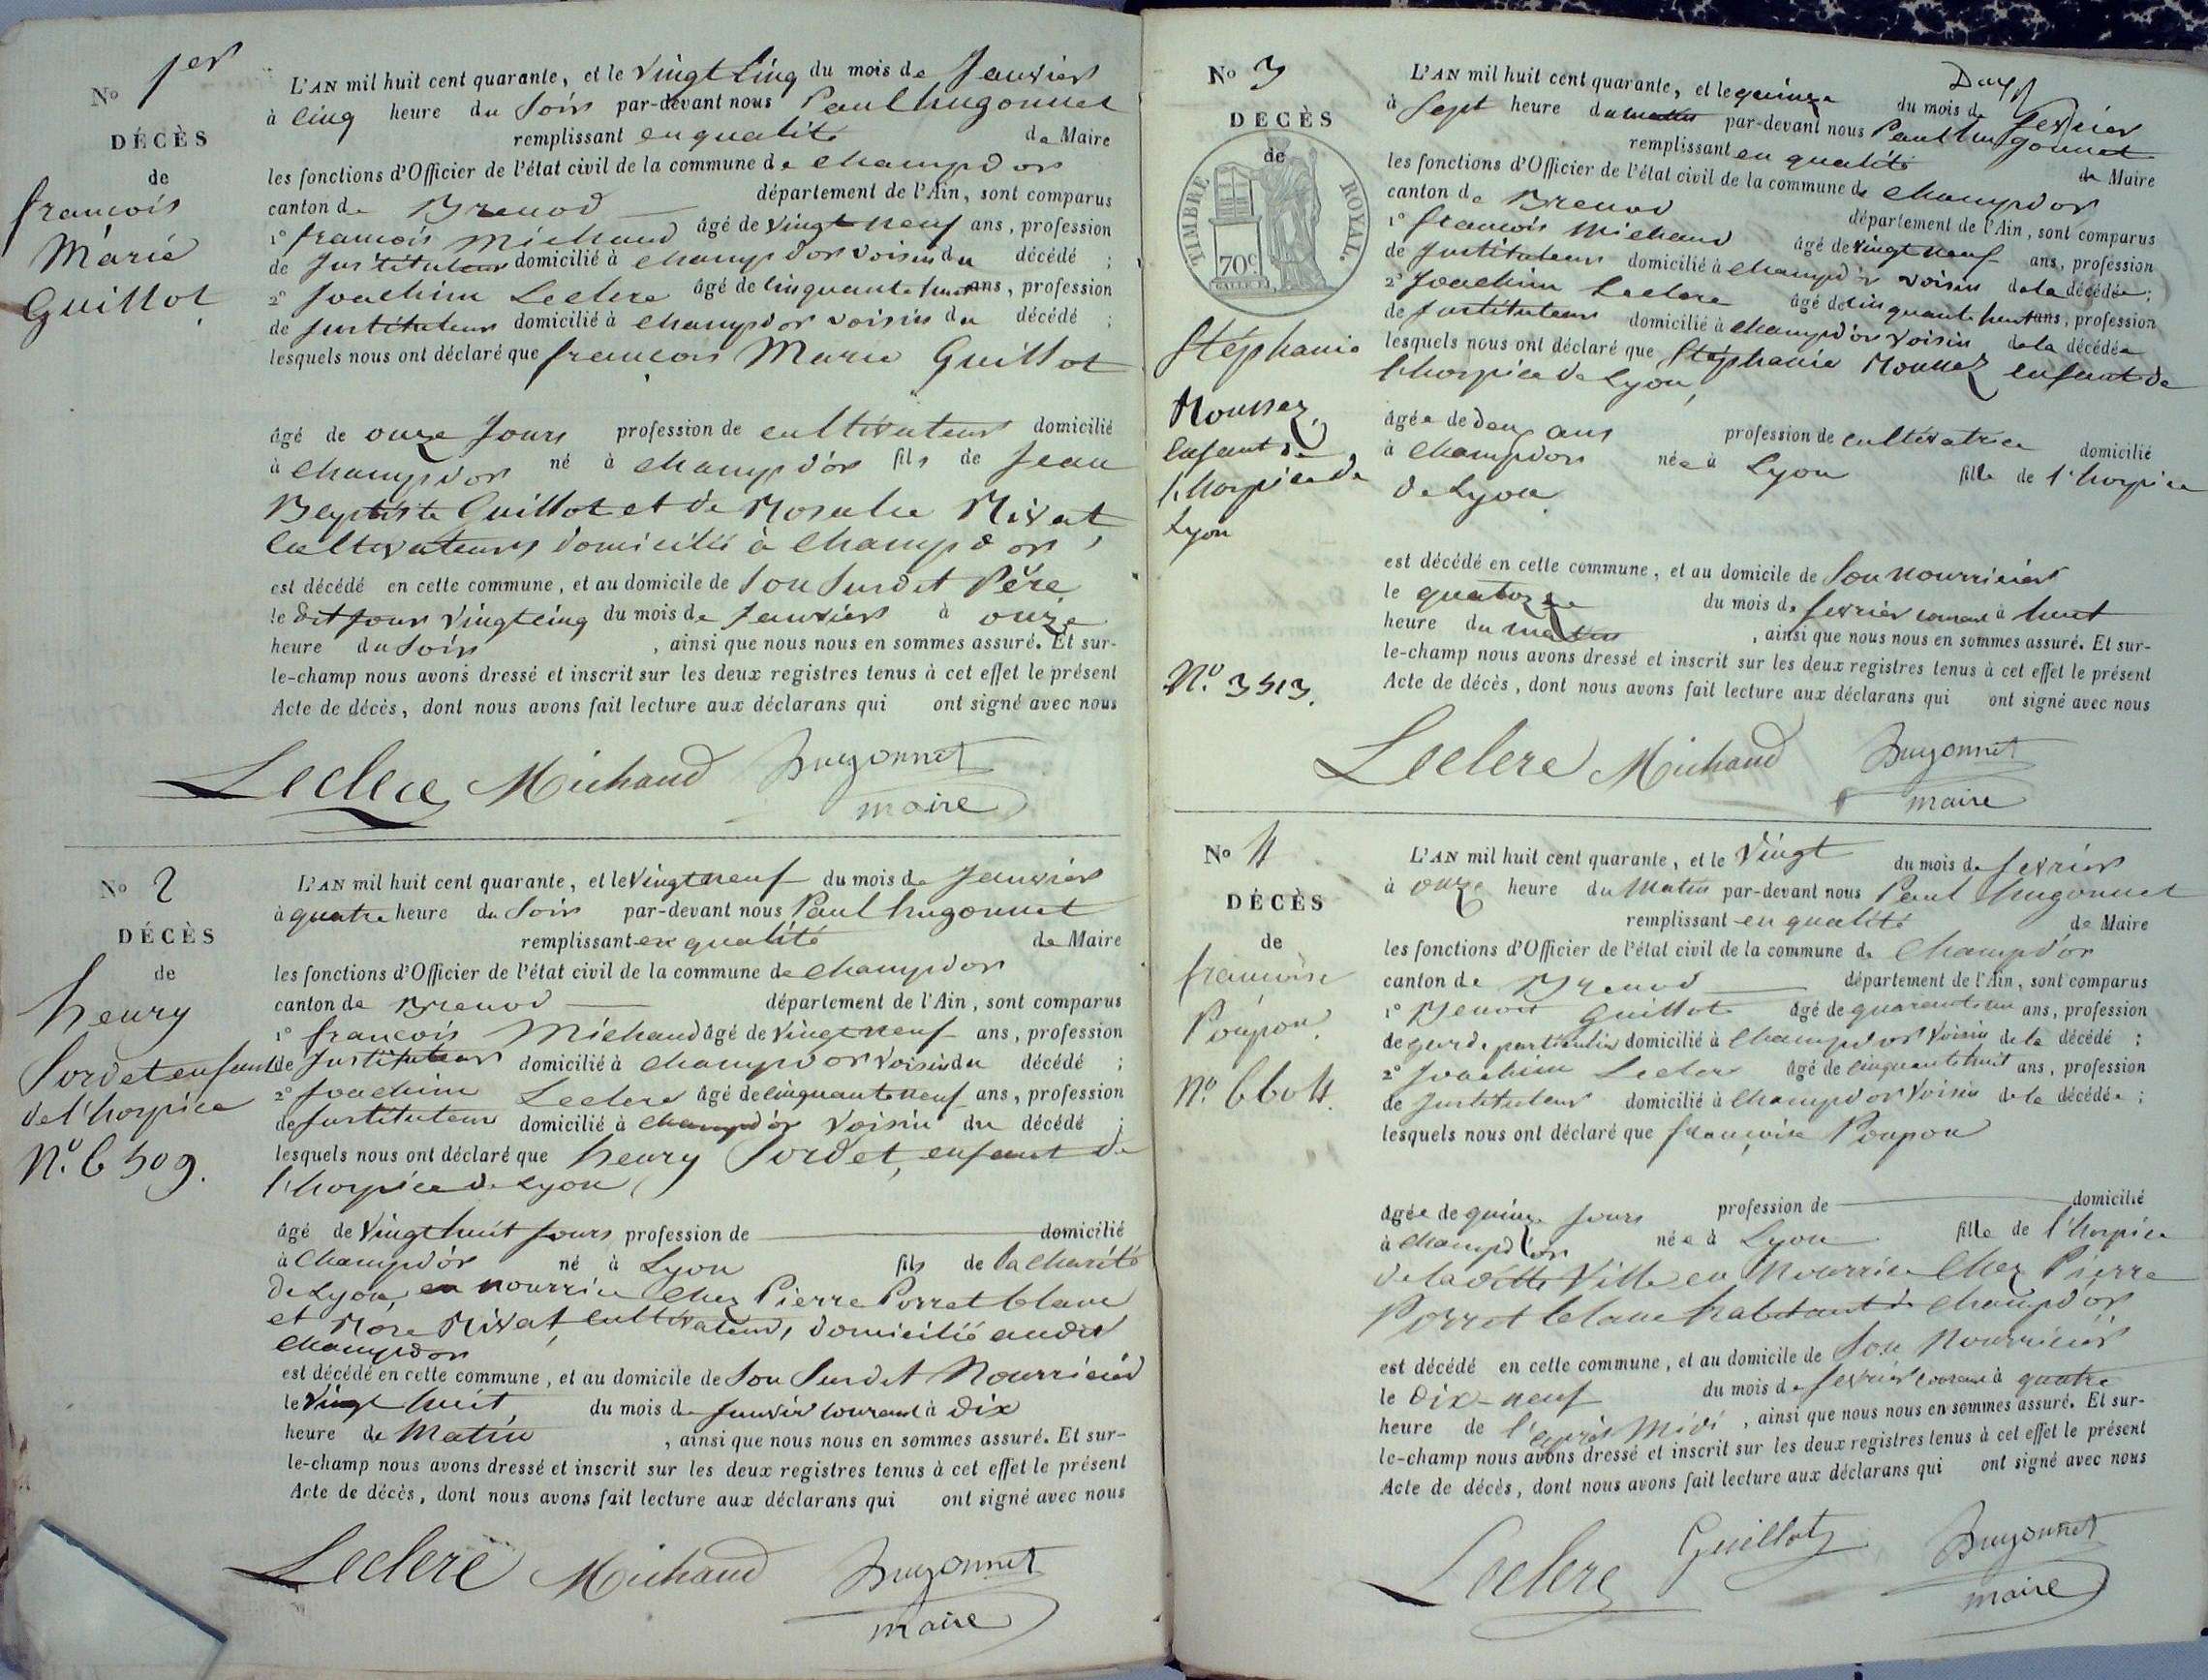 No 1er
DÉCÈS
de
françois
Marie
Guillot
L'AN mil huit cent quarante, et le vingt cinq du mois de Janvier
à cinq heure du Soir par-devant nous Paul hugonnet
remplissant en qualité de Maire
les fonctions d'Officier de l'état civil de la commune de champdor
canton de Brenod département de l'Ain, sont comparus
1° françois Michaud âgé de vingt neuf ans, profession
de Instituteur domicilié à champdor voisin du décédé ;
2° Joachim Leclerc âgé de cinquante huit ans, profession
de Instituteur domicilié à champdor voisin du décédé ;
lesquels nous ont déclaré que françois Marie Guillot
âgé de onze Jours profession de cultivateur domicilié
à champdor né à champd'or fils de Jean
Baptiste Guillot et de Rosalie Rivat,
Cultivateurs domicilié à champdor,
est décédé en cette commune, et au domicile de Son Susdit Père
le dit Jour vingt cinq du mois de Janvier à onze
heure du Soir , ainsi que nous nous en sommes assuré. Et sur-
le-champ nous avons dressé et inscrit sur les deux registres tenus à cet effet le présent
Acte de décès, dont nous avons fait lecture aux déclarans qui ont signé avec nous
Leclerc Michaud hugonnet
maire
No 2
DÉCÈS
de
henry
Sordet enfant
de l'hospice
N.° 6509.
L'AN mil huit cent quarante, et le vingt neuf du mois de Janvier
à quatre heure du Soir par-devant nous Paul hugonnet
remplissant en qualité de Maire
les fonctions d'Officier de l'état civil de la commune de champdor
canton de Brenod département de l'Ain, sont comparus
1° françois Michaud âgé de vingt neuf ans, profession
de Instituteur domicilié à champdor voisin du décédé ;
2° Joachim Leclerc âgé de cinquante neuf ans, profession
de Instituteur domicilié à champd'or voisin du décédé ;
lesquels nous ont déclaré que henry Sordet, enfant de
l'hospice de Lyon,
âgé de vingt huit Jours profession de domicilié
à champd'or né à Lyon fils de la charité
de Lyon, en nourrice chez Pierre Porret blanc
et Rose Rivat, cultivateurs, domicilié audit
champdor
est décédé en cette commune, et au domicile de Son Susdit Nourricier
le vingt huit du mois de Janvier courant à dix
heure de Matin , ainsi que nous nous en sommes assuré. Et sur-
le-champ nous avons dressé et inscrit sur les deux registres tenus à cet effet le présent
Acte de décès, dont nous avons fait lecture aux déclarans qui ont signé avec nous
Leclerc Michaud hugonnet
maire
No 3
DECÈS
de
TIMBRE ROYAL.
70c
Stéphanie
Roussez,
enfant de
l'hospice de
Lyon
N.° 3513.
L'AN mil huit cent quarante, et le quinze du mois de fevrier
à Sept heure du matin par-devant nous Paul hugonnet
remplissant en qualité de Maire
les fonctions d'Officier de l'état civil de la commune de champdor
canton de Brenod département de l'Ain, sont comparus
1° françois Michaud âgé de vingt neuf ans, profession
de Instituteur domicilié à champd'or voisin de la décédée ;
2° Joachim Leclerc âgé de cinquante huit ans, profession
de Instituteur domicilié à champd'or voisin de la décédée
lesquels nous ont déclaré que Stéphanie Roussez enfant de
l'hospice de Lyon,
âgée de deux ans profession de cultivatrice domicilié
à champdor née à Lyon fille de l'hospice
de Lyon.
est décédé en cette commune, et au domicile de Son nourricier
le quatorze du mois de fevrier courant à huit
heure du matin , ainsi que nous nous en sommes assuré. Et sur-
le-champ nous avons dressé et inscrit sur les deux registres tenus à cet effet le présent
Acte de décès, dont nous avons fait lecture aux déclarans qui ont signé avec nous
Leclerc Michaud hugonnet
maire
No 4
DÉCÈS
de
françoise
Poupon.
N.° 6604.
L'AN mil huit cent quarante, et le vingt du mois de fevrier
à onze heure du Matin par-devant nous Paul hugonnet
remplissant en qualité de Maire
les fonctions d'Officier de l'état civil de la commune de Champd'or
canton de Brenod département de l'Ain, sont comparus
1° Benoit Guillot âgé de quarante un ans, profession
de garde particulier domicilié à Champdor Voisin de la décédé ;
2° Joachim Leclerc âgé de cinquante huit ans, profession
de Instituteur domicilié à Champdor Voisin de la décédée ;
lesquels nous ont déclaré que françoise Poupon
âgée de quinze Jours profession de domicilié
à champd'or née à Lyon fille de l'hospice
de la ditte Ville en Nourrice chez Pierre
Porret blanc habitant de champdor
est décédé en cette commune, et au domicile de Son Nourricier
le Dix-neuf du mois de fevrier courant à quatre
heure de l'après Midi , ainsi que nous nous en sommes assuré. Et sur-
le-champ nous avons dressé et inscrit sur les deux registres tenus à cet effet le présent
Acte de décès, dont nous avons fait lecture aux déclarans qui ont signé avec nous
Leclerc Guillot hugonnet
maire